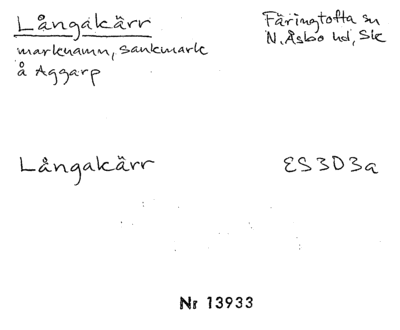 Långakärr
Färingtofta sn
marknamn, sankmark
N. Åsbo hd, Sk
å Aggarp
Långakärr
ES3D3a
Nr 13933